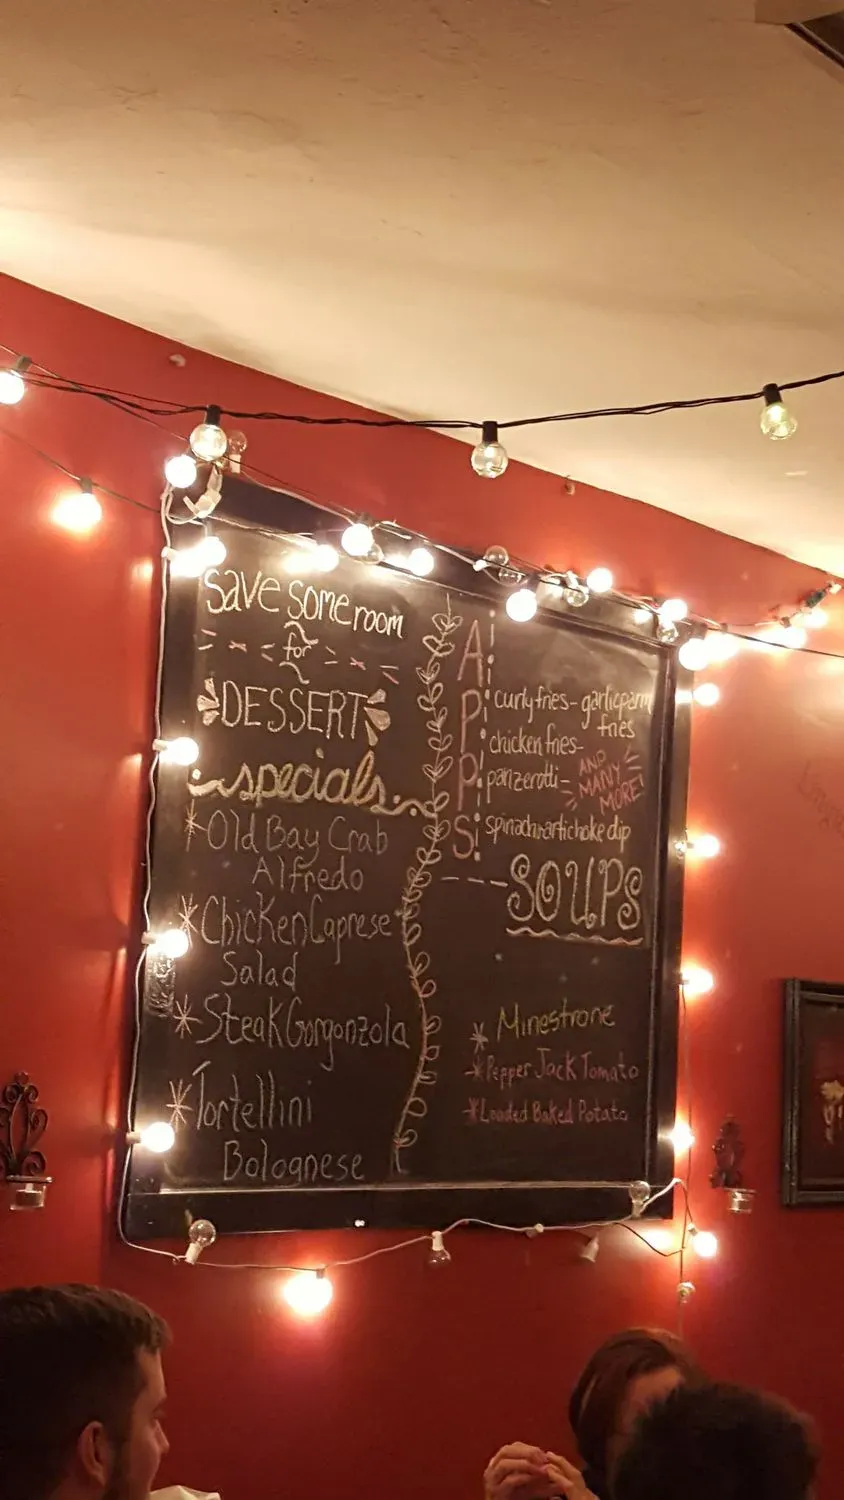 save some room
for
DESSERT
specials
Old Bay Crab
Alfredo
Chicken Caprese
Salad
Steak Gorgonzola
Tortellini
Bolognese
APPS
curly fries - garlic parm
fries
chicken fries -
panzerotti -
AND
MANY
MORE!
spinach artichoke dip
SOUPS
Minestrone
Pepper Jack Tomato
Loaded Baked Potato